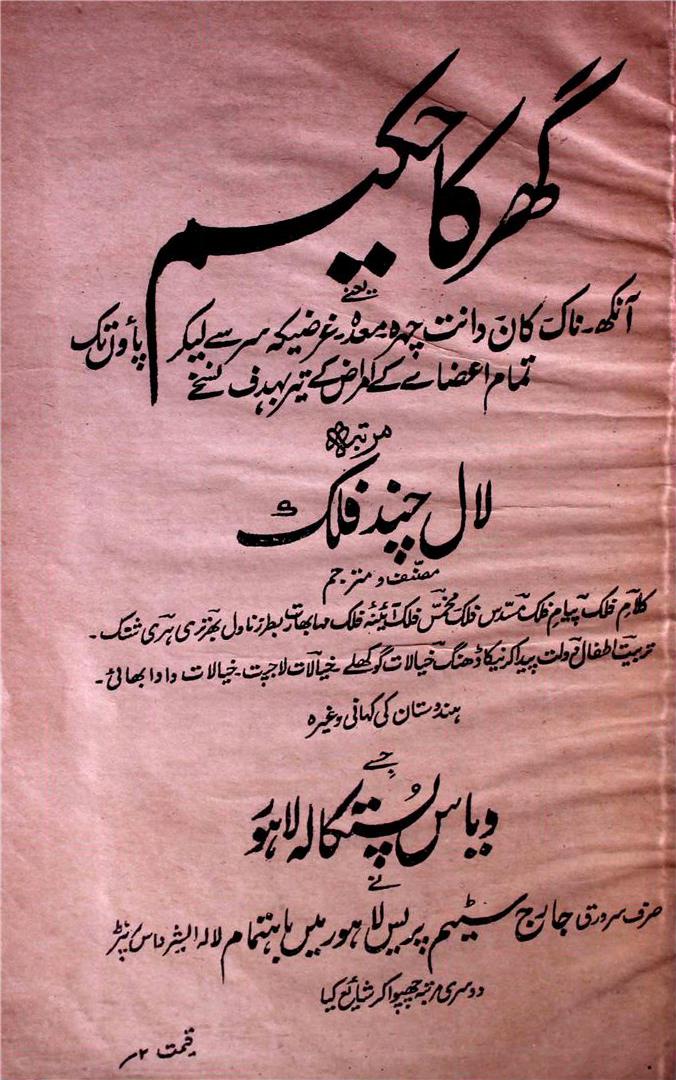 گھر کا حکیم
یعنے
آنکھ۔ ناک کان دانت چہرہ معدہ۔ غرضیکہ سر سے لیکر پاؤں تک
تمام اعضاے کے امراض کے تیر بہدف نسخے
مرتبہ
لال چند فلک
مصنف و مترجم
کلام فلک پیام فلک مسدس فلک مخمس فلک آئینہ فلک مہابھارت بطرز ناول بھرتری ہری شتک۔
تربیت اطفال دولت پیدا کرنیکا ڈھنگ خیالات گوکھلے۔ خیالات لاجپت۔ خیالات دادا بھائی۔
ہندوستان کی کہانی وغیرہ
جسے
ویاس پستکالہ لاہور
نے
صرف سرورق جارج سٹیم پریس لاہور میں باہتمام لالہ ایشر داس پرنٹر
دوسری مرتبہ چھپوا کر شایع کیا
قیمت ۲